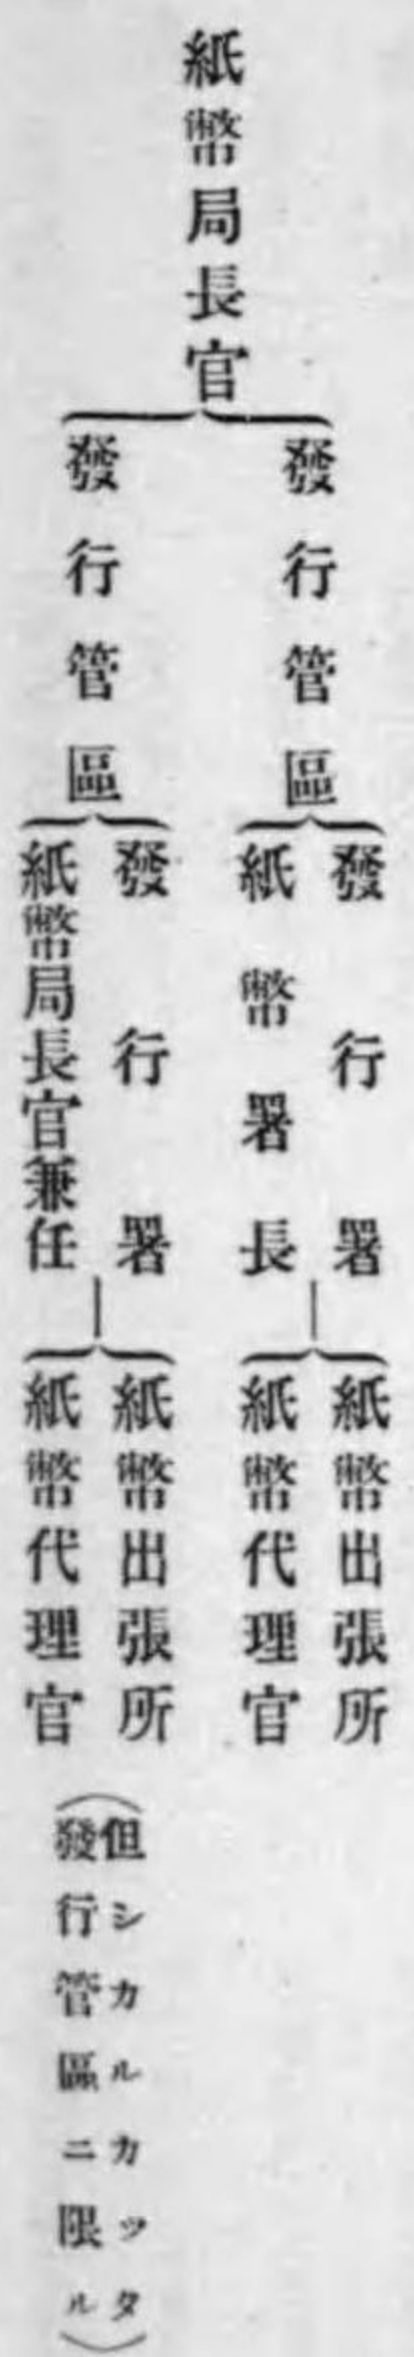 紙幣局長官
發行管區
發行署
紙幣署長
紙幣出張所
紙幣代理官
發行管區
發行署
紙幣局長官兼任
紙幣出張所
紙幣代理官
(但シカルカツタ
發行管區ニ限ル)